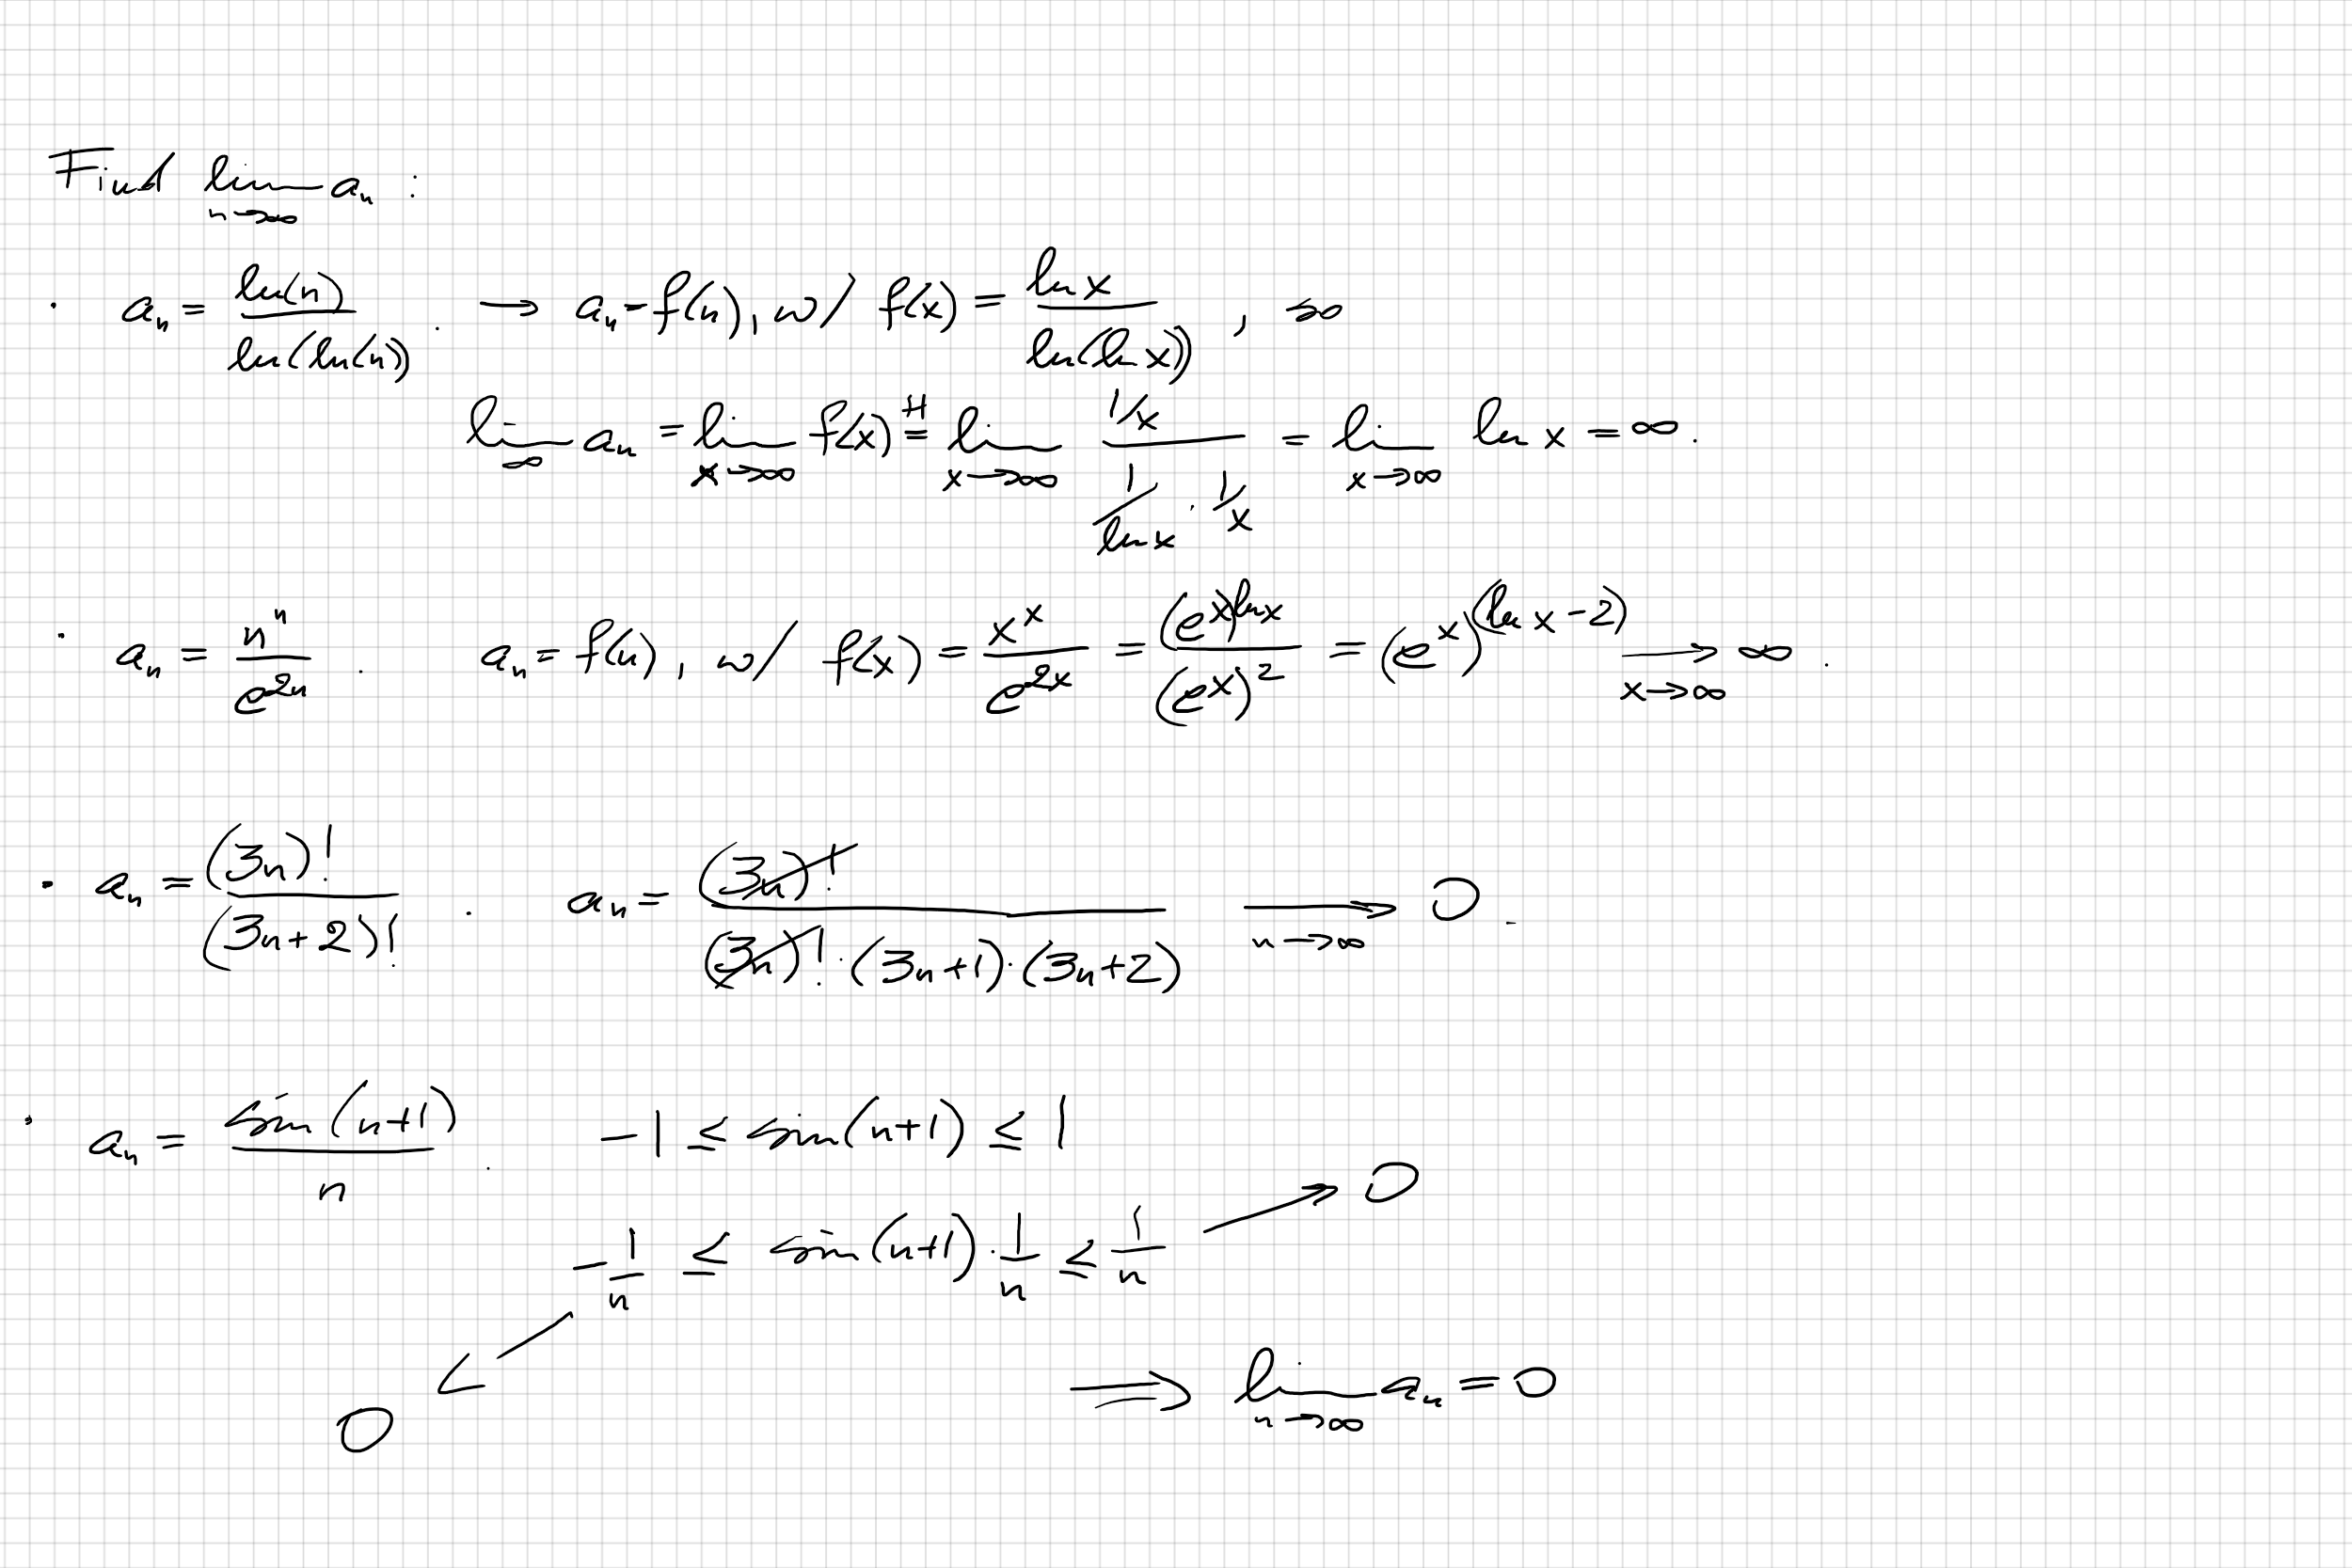 Find lim_{n→∞} a_n :
· a_n = ln(n) / ln(ln(n)) . → a_n = f(n), w/ f(x) = ln x / ln(ln x) , so
lim_∞ a_n = lim_{x→∞} f(x) =^H lim_{x→∞} (1/x) / (1/ln x · 1/x) = lim_{x→∞} ln x = ∞.
· a_n = n^n / e^{2n} . a_n = f(n), w/ f(x) = x^x / e^{2x} = (e^x)^{ln x} / (e^x)^2 = (e^x)^{(ln x - 2)} →_{x→∞} ∞.
· a_n = (3n)! / (3n+2)! . a_n = (3n)! / ((3n)! · (3n+1) · (3n+2)) →_{n→∞} 0.
· a_n = sin(n+1) / n . -1 ≤ sin(n+1) ≤ 1
-1/n ≤ sin(n+1) · 1/n ≤ 1/n → 0
0
⇒ lim_{n→∞} a_n = 0